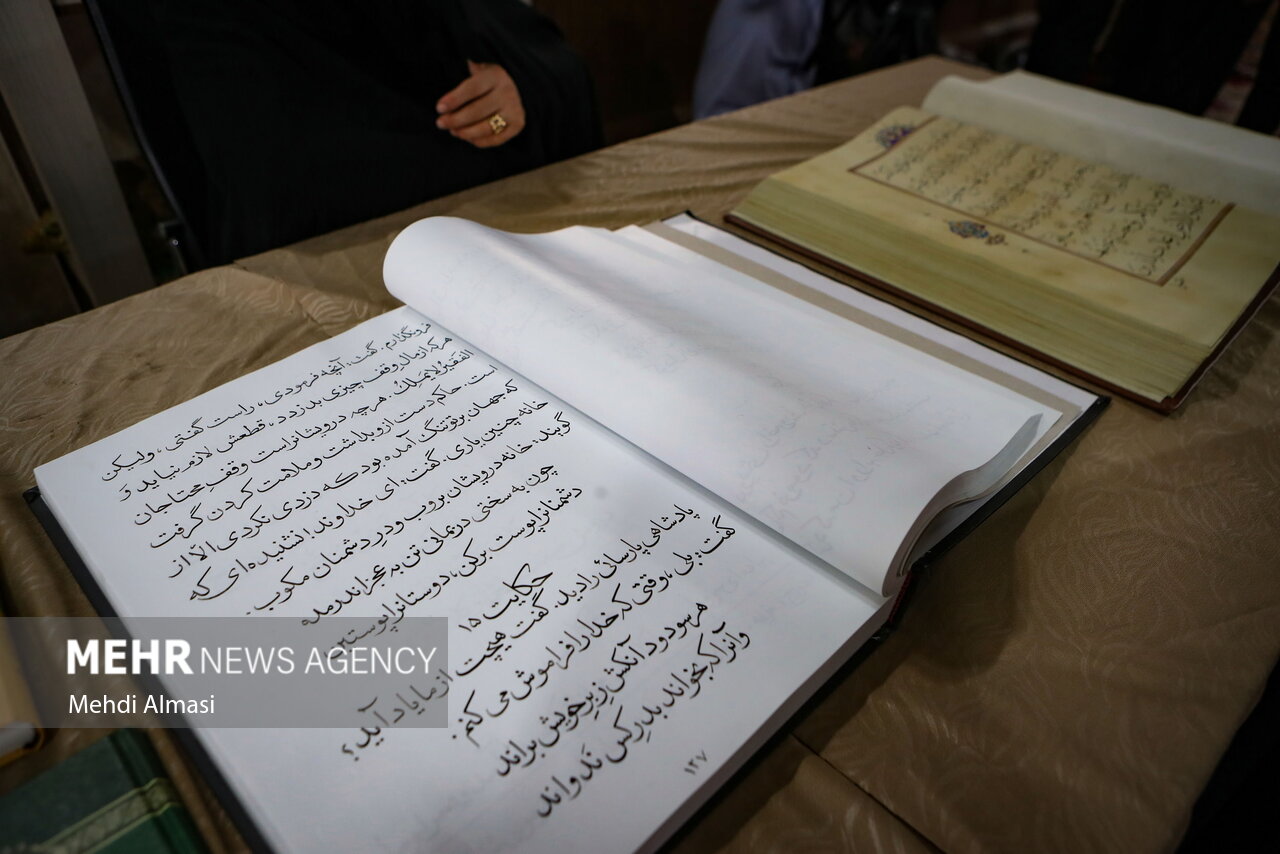 فرونگذارم. گفت: آنچه فرمودی، راست گفتی، ولیکن
هرکه از مال وقف چیزی بدزدد، قطعش لازم نیاید وَ
الفَقیرُ لایَملِکُ. هرچه درویشانراست وقفِ محتاجان
است. حاکم دست ازو بداشت و ملامت کردن گرفت
که جهان برتو تنگ آمده بود که دزدی نکردی الّا از
خانه چنین یاری. گفت: ای خداوند! نشنیده‌ای که
گویند: خانه درویشان بروب و درِ دشمنان مکوب.
چون به سختی درنمانی تن به عجز اندرمده
دشمنانرا پوست برکن، دوستانرا پوستین
حکایت ۱۵
پادشاهی پارسائی را دید. گفت هیچت از ما یاد آید؟
گفت: بلی، وقتی که خدا را فراموش می کنم.
هرسو دود آنکش زِبرِ خویش براند
وآنرا که بخواند بدرِ کس ندواند
۱۲۷
MEHR NEWS AGENCY
Mehdi Almasi